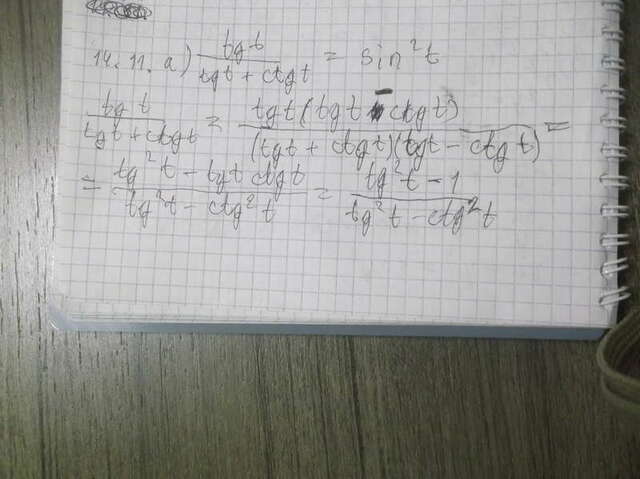 14.11. а) tg t / (tg t + ctg t) = sin²t
tg t / (tg t + ctg t) = tg t (tg t - ctg t) / (tg t + ctg t)(tg t - ctg t) =
= tg²t - tg t ctg t / tg²t - ctg²t = tg²t - 1 / tg²t - ctg²t